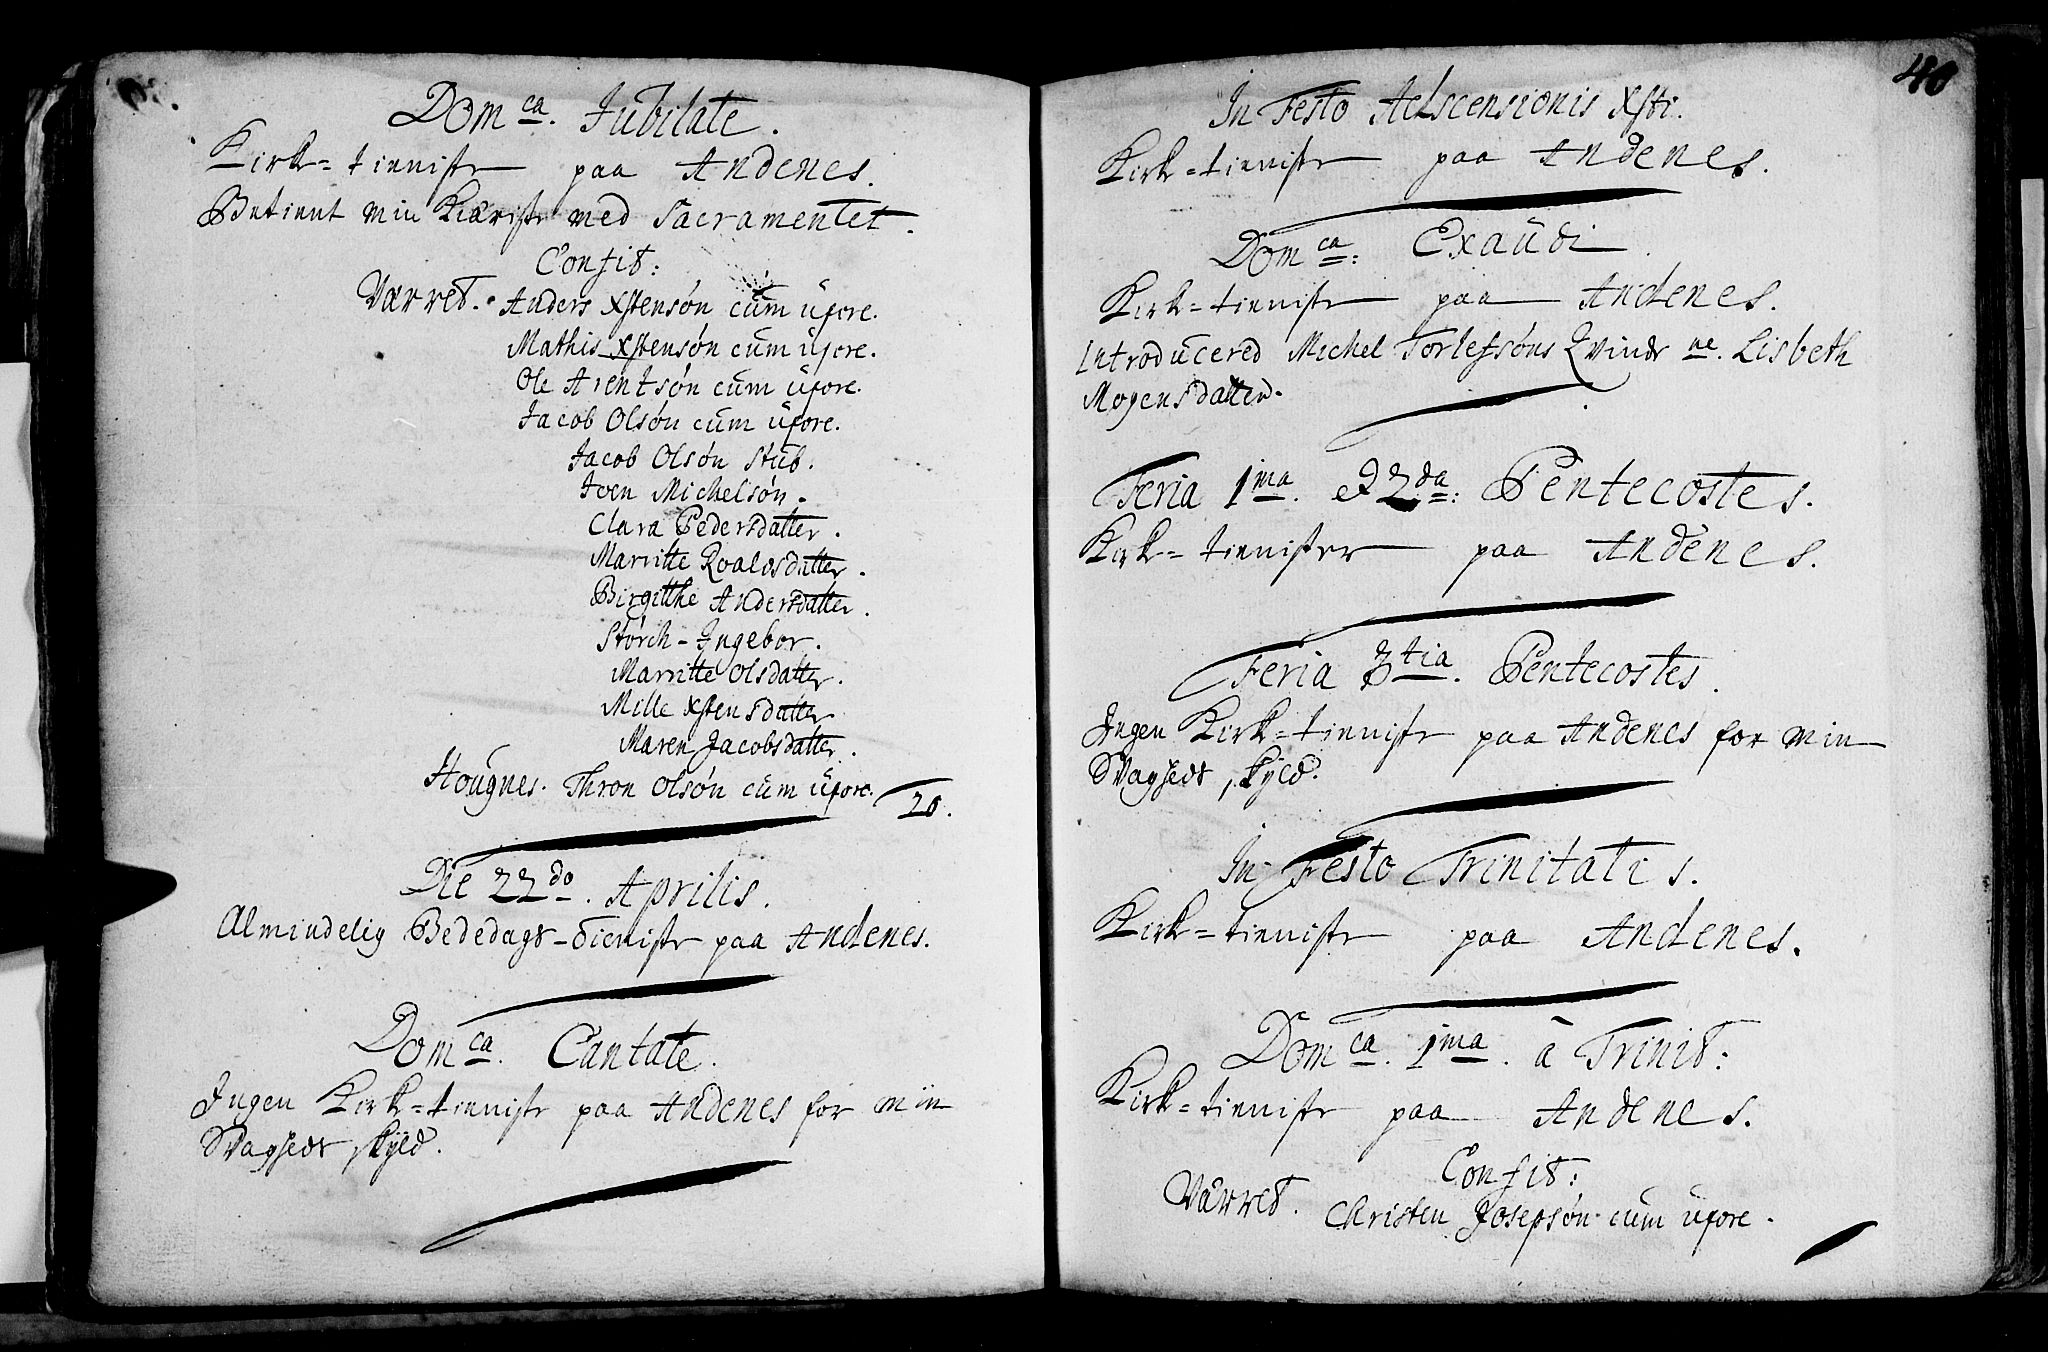 Dom ca. Jubilate.
Kirk=tieniste paa Andenes.
Betient min Kiæriste med Sacramentet.
Confit:
Værret. Anders Xstensøn cum uxore.
Mathis Xstensøn cum uxore.
Ole Arentsøn cum uxore.
Jacob Olsøn cum uxore.
Jacob Olsøn Stub.
Joen Michelsøn.
Clara Pedersdatter.
Marritte Roaldsdatter.
Birgitthe Andersdatter.
Størch-Ingebor.
Marritte Olsdatter.
Mille Xstensdatter
Maren Jacobsdatter.
Hougnes. Thron Olsøn cum uxore. 20.
Die 22do. Aprilis.
Almindelig Bededags-Tieniste paa Andenes.
Dom ca. Cantate.
Ingen Kirk=tieniste paa Andenes for min
Svagheds skyld.
40
In Festo Adscensionis Xsti.
Kirk=tieniste paa Andenes.
Dom ca: Exaudi.
Kirk=tieniste paa Andenes.
Introducered Michel Torlefsøns Qvinde ne. Lisbeth
Mogensdatter.
Feria 1ma. et 2da: Pentecostes.
Kirk=tienister paa Andenes.
Feria 3tia. Pentecostes.
Ingen Kirk=tieniste paa Andenes for min
Svagheds skyld.
In Festo Trinitatis.
Kirk=tieniste paa Andenes.
Dom ca. 1ma. à Trinit:
Kirk=tieniste paa Andenes.
Confit:
Værret. Christen Josepsøn cum uxore.